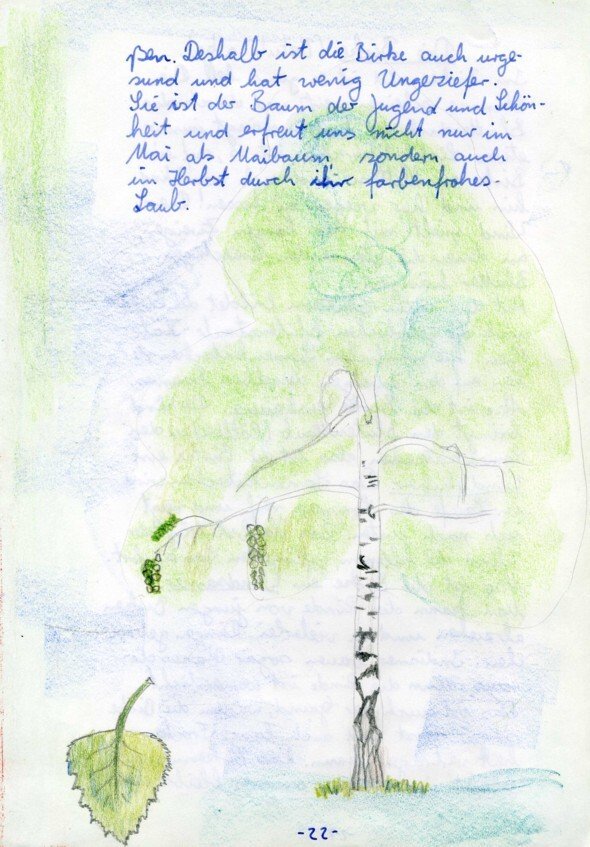 ßen. Deshalb ist die Birke auch urge-
sund und hat wenig Ungeziefer.
Sie ist der Baum der Jugend und Schön-
heit und erfreut uns nicht nur im
Mai als Maibaum, sondern auch
im Herbst durch ihr farbenfrohes
Laub.
-22-